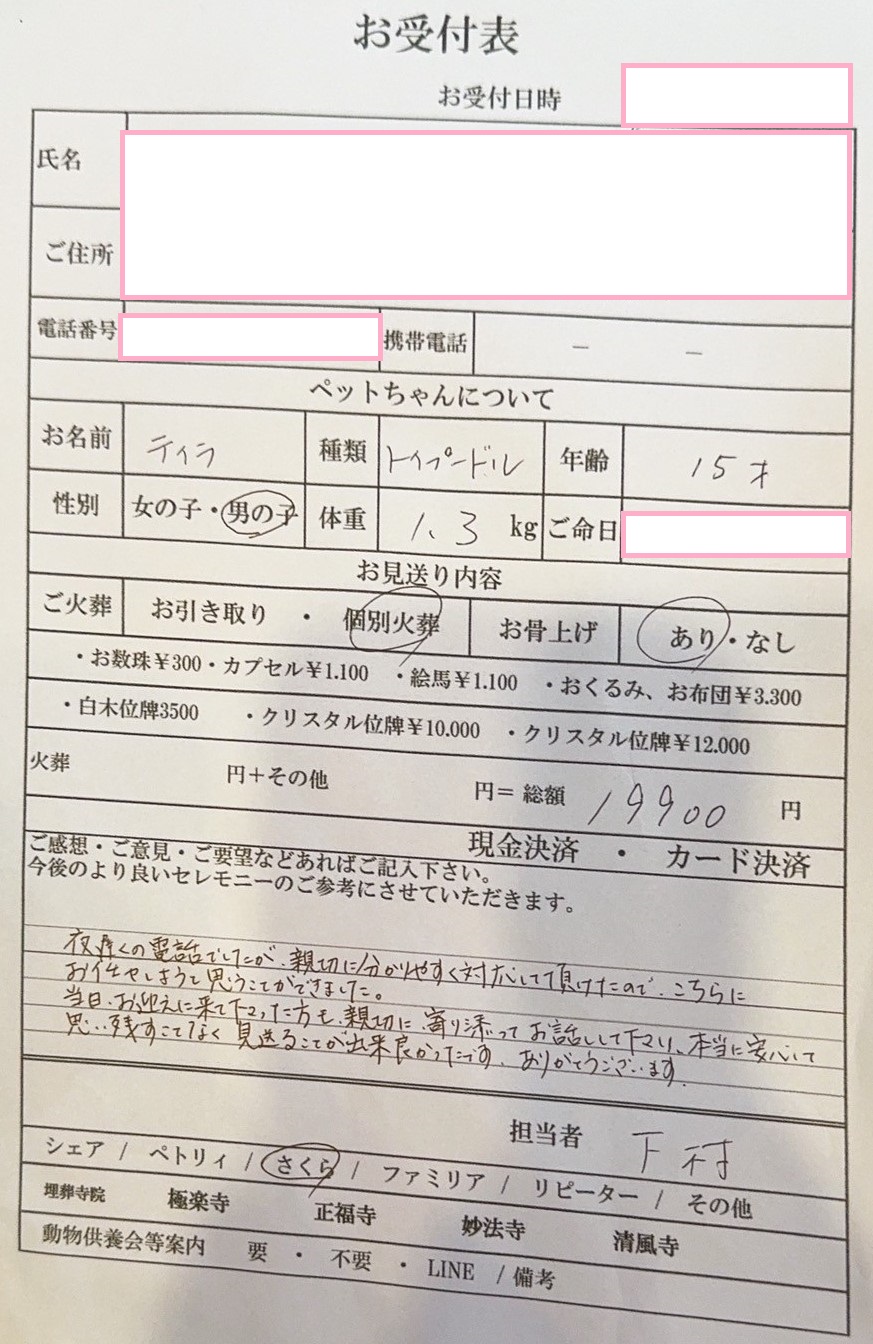 お受付表
お受付日時
氏名
ご住所
電話番号 携帯電話 － －
ペットちゃんについて
お名前 ティラ 種類 トイプードル 年齢 15才
性別 女の子・男の子 体重 1.3 kg ご命日
お見送り内容
ご火葬 お引き取り ・ 個別火葬 お骨上げ あり・なし
・お数珠¥300・カプセル¥1.100 ・絵馬¥1.100 ・おくるみ、お布団¥3.300
・白木位牌3500 ・クリスタル位牌¥10.000 ・クリスタル位牌¥12.000
火葬 円＋その他 円＝ 総額 19900 円
現金決済 ・ カード決済
ご感想・ご意見・ご要望などあればご記入下さい。
今後のより良いセレモニーのご参考にさせていただきます。
夜遅くの電話でしたが、親切に分かりやすく対応して頂けたので、こちらに
お任せしようと思うことができました。
当日、お迎えに来て下さった方も、親切に、寄り添ってお話しして下さり、本当に安心して
思い残すことなく見送ることが出来良かったです。ありがとうございます。
担当者 下村
シェア / ペトリィ / さくら / ファミリア / リピーター / その他
埋葬寺院 極楽寺 正福寺 妙法寺 清風寺
動物供養会等案内 要 ・ 不要 ・ LINE / 備考